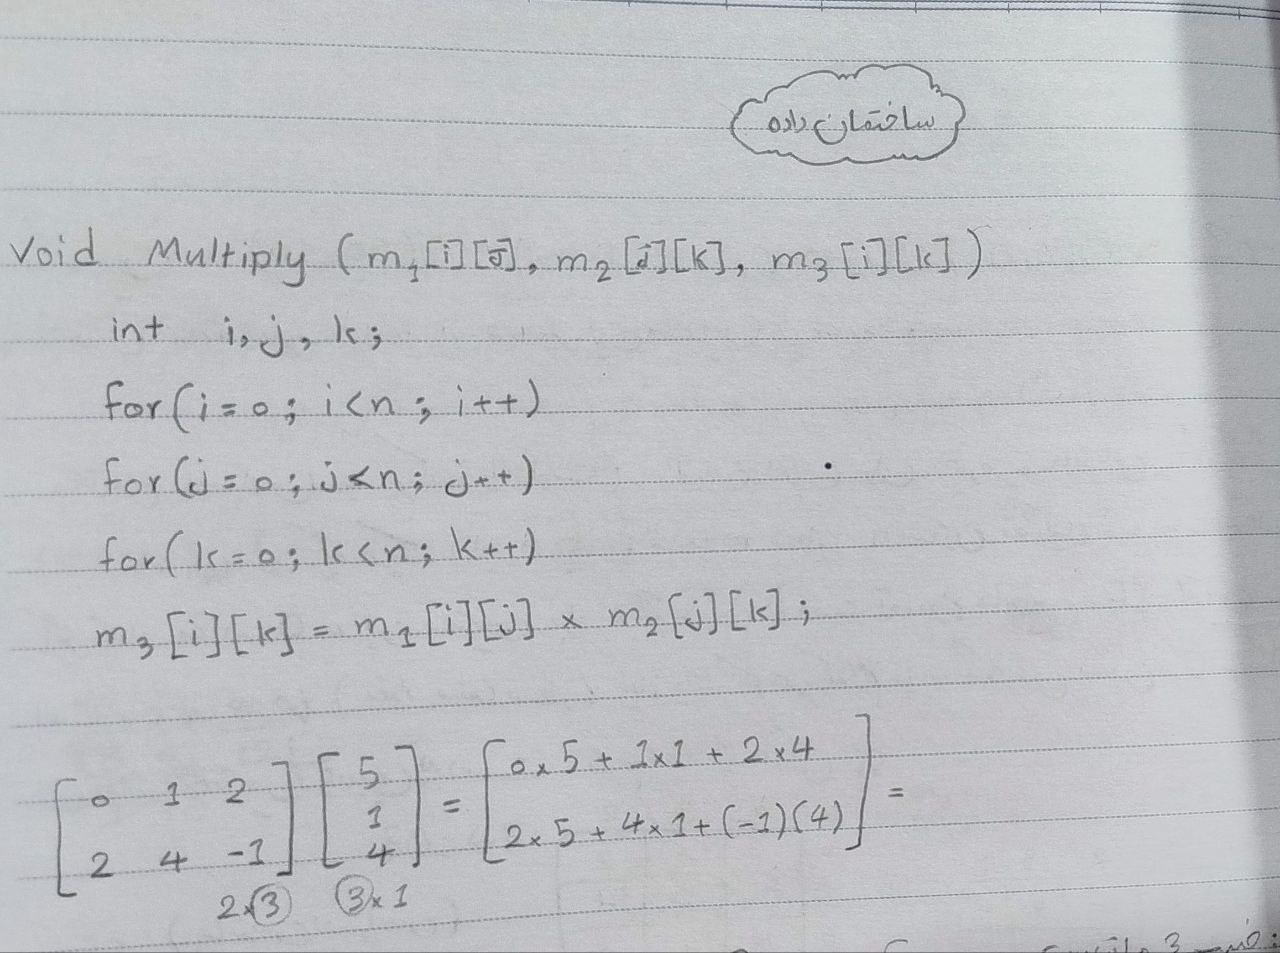 ساختمان داده
Void Multiply (m₁[i][j], m₂[j][k], m₃[i][k])
int i, j, k;
for(i=0; i<n; i++)
for(j=0; j<n; j++)
for(k=0; k<n; k++)
m₃[i][k] = m₁[i][j] × m₂[j][k];
[0 1 2] [5] = [0×5 + 1×1 + 2×4] =
1
[2 4 -1] [4] [2×5 + 4×1 + (-1)(4)]
2×3 3×1
3